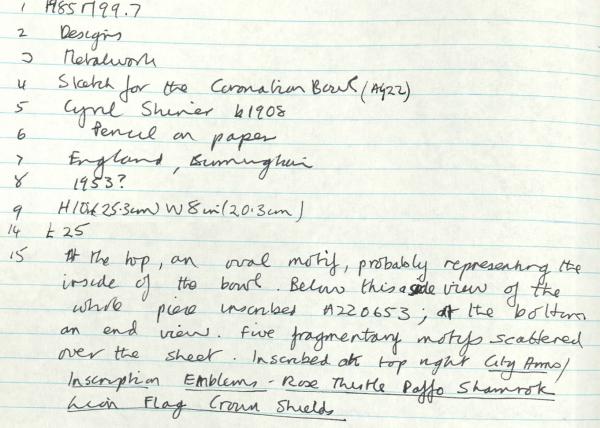 1 M85M99.7
2 Designs
3 Metalwork
4 Sketch for the Coronation Bowl (A922)
5 Cyril Shiner b1908
6 Pencil on paper
7 England, Birmingham
8 1953?
9 H10in (25.3cm) W 8in (20.3cm)
14 £25
15 At the top, an oval motif, probably representing the
inside of the bowl. Below this a side view of the
whole piece inscribed A220653; at the bottom
an end view. Five fragmentary motifs scattered
over the sheet. Inscribed at top right City Arms/
Inscription Emblems - Rose Thistle Daffo Shamrok
Lion Flag Crown Shields